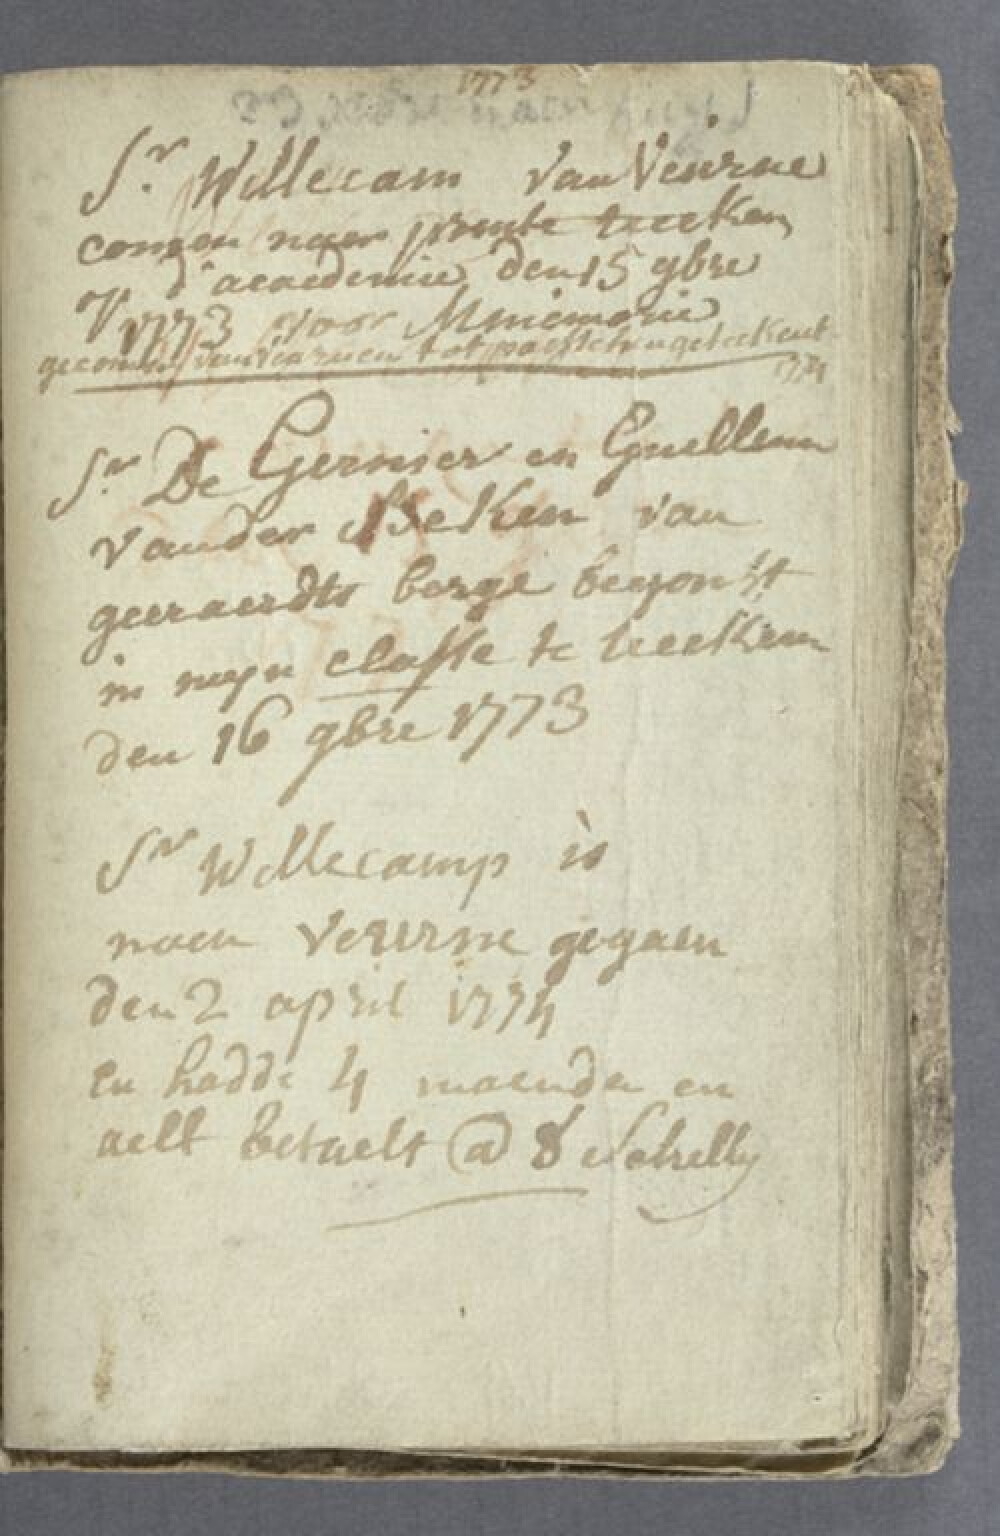 1773
Sr. Willecam van Veurne
comen naer prente teecken
d'academie den 15 9bre
1773 voor Mmemorie
gecomen van veurnen tot paesschen geteekent
1774
Sr. De Gernier en Guellem
vander Beken van
geeraerdts berge begonst
in meyn classe te teecken
den 16 9bre 1773
Sr Willecamp is
naer Veurne gegaen
den 2 april 1774
en hadde 4 maenden en
aelf betaelt @ 8 Schelly